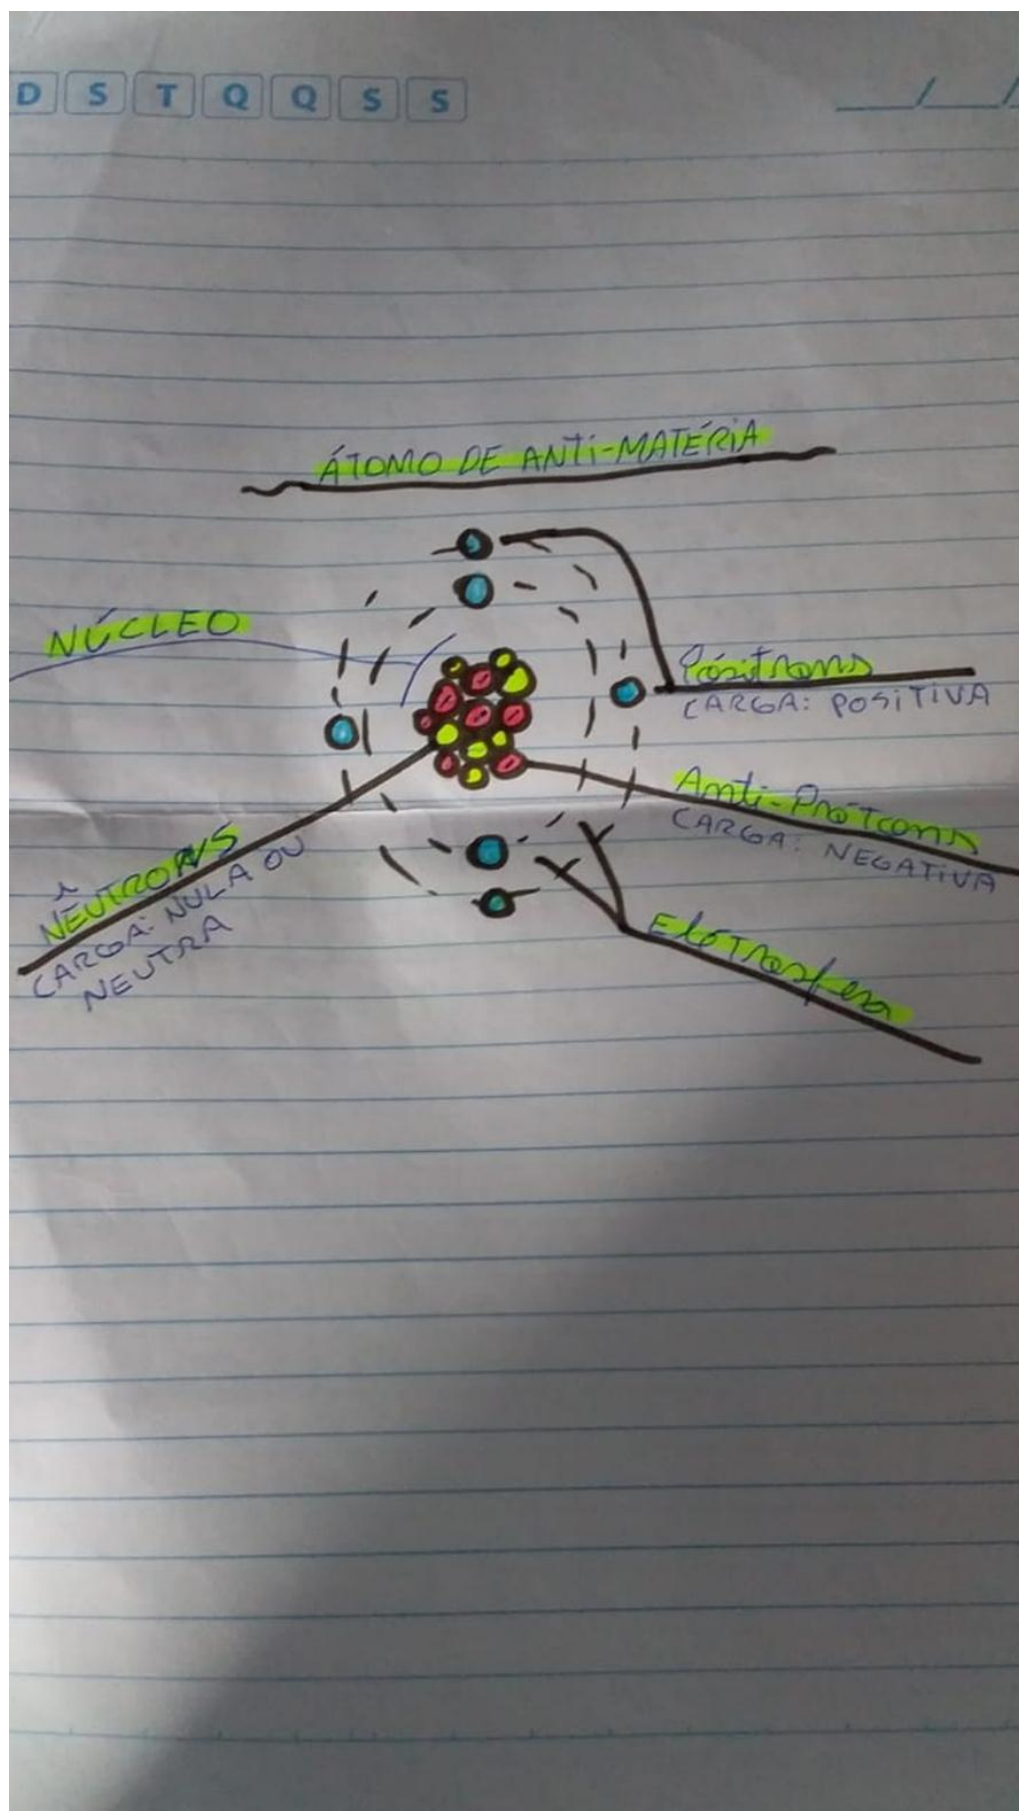 D S T Q Q S S
___/___/
ÁTOMO DE ANTI-MATÉRIA
NÚCLEO
Pósitrons
CARGA: POSITIVA
Anti-Prótons
CARGA: NEGATIVA
NÊUTRONS
CARGA: NULA OU
NEUTRA
Elétrosfera